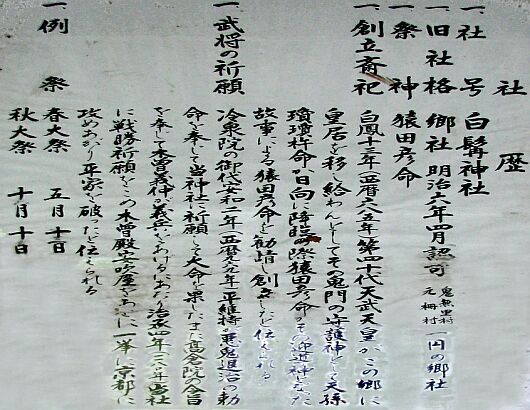 社歴
一、社号 白髯神社
一、旧社格 郷社 明治六年四月認可 鬼無里村 元柵村 一円の郷社
一、祭神 猿田彦命
一、創立斎祀 白鳳十三年(西暦六八五年)第四十代天武天皇がこの郷に
皇居を移し給わんとしてその鬼門の守護神として天孫
瓊瓊杵命が日向に降臨の際猿田彦命がその迎道神となった
故事による猿田彦命を勧請し創立したと伝えられる
一、武将の祈願 冷泉院の御代安和二年(西暦九六九年)平維持が悪鬼退治の勅
命を奉じて当神社に祈願して大命を果したまた高倉院の令旨
を奉じて木曽義仲が義兵をあげるにあたり治承四年(一一八〇年)当社
に戦勝祈願をしこの木曽殿安吹屋をあとに一挙に京都に
攻めあがり平家を破ったと伝られる
一、例祭 春大祭 五月十二日
秋大祭 十月十日